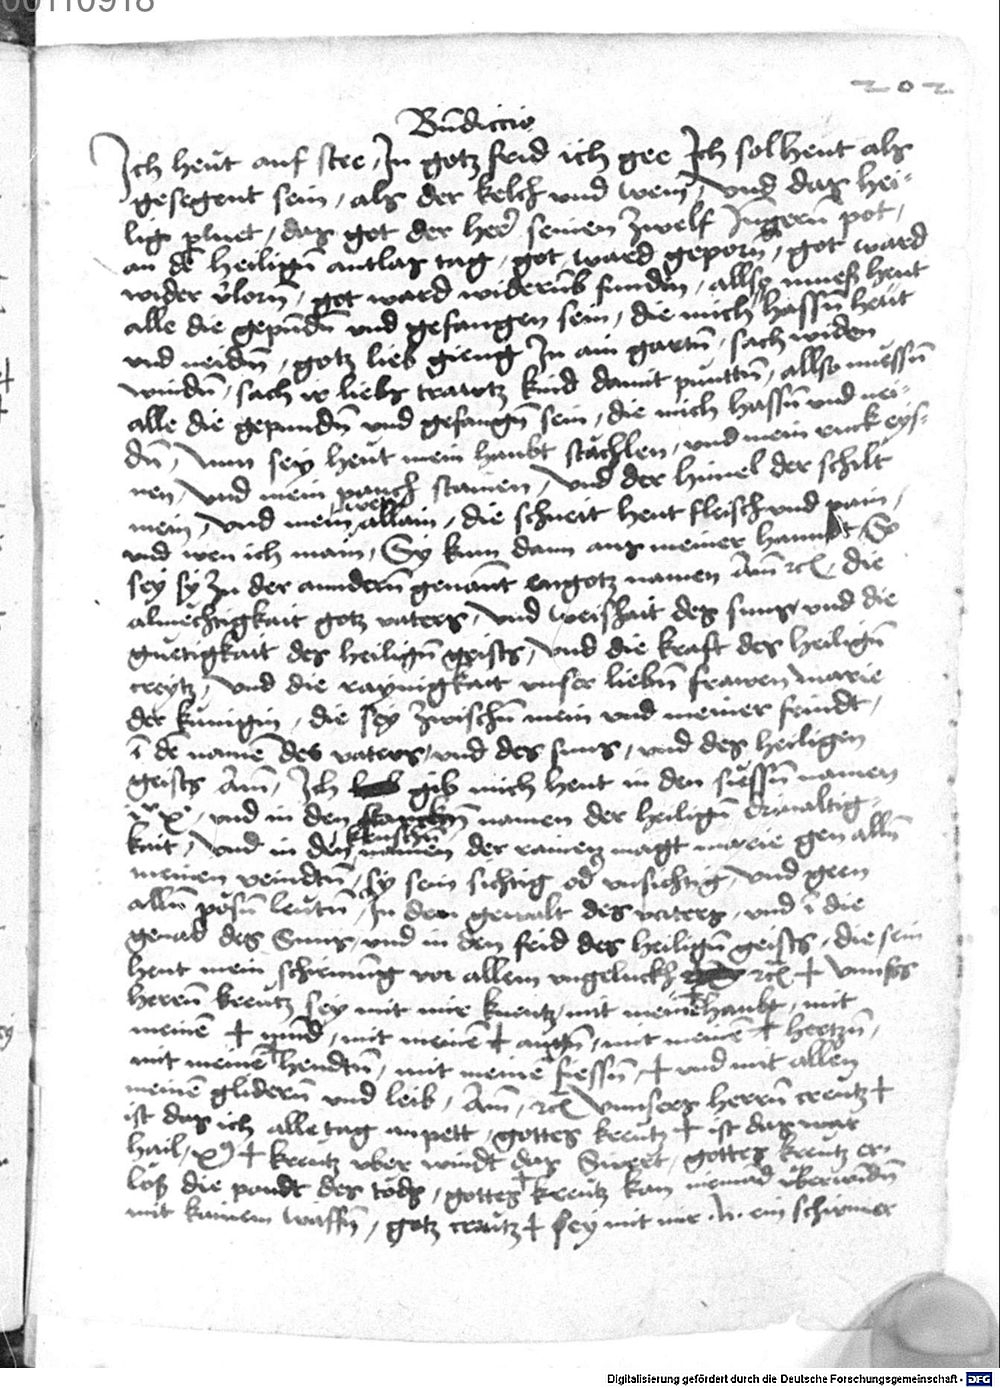 00110918
202
Bn̄diccio
Ich heut auf stee, In gotz frid ich gee Ich sol heut als
gesegent sein, als der kelch und wein, und das hei-
lig pluet, das got der herr seinen zwelf Jungern̄ pot,
an dē heilign̄ antlas tag, got ward geporn̄, got ward
wider v̄lorn̄, got ward widerūb funden, allso mues heut
alle die gepundn̄ und gefangen sein, die mich hassn̄ heut
und neidn̄, gotz lieb gieng In ain gartn̄, sach widen
windn̄, sach ir liebs trawtz kind damit punttn̄, allso muessn̄
alle die gepundn̄ und gefangn̄ sein, die mich hassn̄ und nei-
dn̄, Nun sey heut mein haubt stächlen, und mein ruck eys-
nen, und mein pauch stainen, und der himel der schilt
mein, und mein allain, die schneit heut fleisch und pain,
und wen ich main, Sy kum dann aus meiner hannt, So
sey sy zu der anndern̄ genant in gotz namen Am̄ rc̄, die
almechtigkait gotz vaters, und weishait des suns, und die
guetigkait des heilign̄ geists, und die kraft des heilign̄
creytz, und die raynigkait unser liebn̄ frawen Marie
der kunigin, die sey zwischn̄ mein und meiner feindt,
ī dē namē des vaters, und des suns, und des heiligen
geists Am̄, Ich gib mich heut in den suessn̄ namen
und in den starckn̄ namen der heilign̄ drivaltig-
kait, und in den keuschn̄ namen der rainen magt marie gen alln̄
meinen veindtn̄, sy sein sichtig od̄ unsichtig, und gegn
alln̄ pösn̄ leutn̄, In den gewalt des vaters, und ī die
genad des Suns, und in den frid des heilign̄ geists, die sein
heut mein schirmūg vor allem ungeluckh rc̄ + unnsers
herrn̄ kreutz sey mit mir kreutz, mit meinē haubt, mit
meinē + mund, mit meinē + augn̄, mit meinē + hertzn̄,
mit meinē + hendtn̄, mit meinē fiessn̄, + und mit allen
meinen glidern̄ und leib, Am̄, rc̄ Unnsers herrn̄ creutz +
ist das ich alle tag anpett, gottes kreutz + ist das war
hail, + kreutz uber windt das Swert, gottes kreutz er-
löß die pandt des töds, gottes + kreutz kan niemād uberwindn̄
mit kainem waffn̄, gotz creutz + sey mit mir .N. ein schirmer
Digitalisierung gefördert durch die Deutsche Forschungsgemeinschaft - DFG